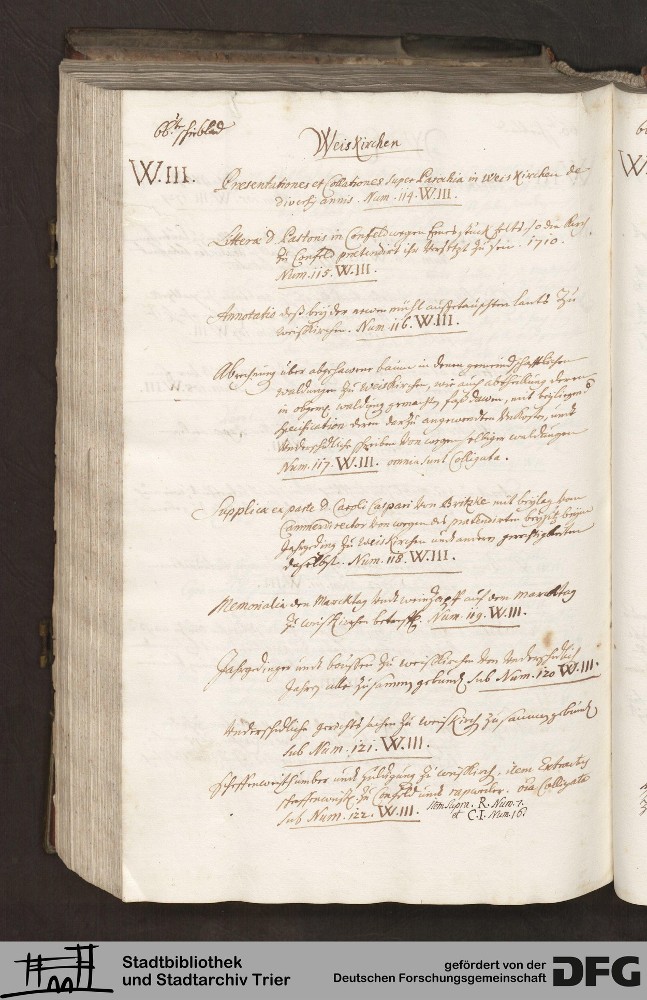 66te schieblad
Weiskirchen
W.III.
Presentationes et Collationes super Parochia in Weiskirchen de
diversis annis. Num. 114. W.III.
Litterae D. Pastoris in Confeld wegen eines stück felts so die Kirch
zu Confeld praetendirt ihr versetzt zu sein. 1710.
Num. 115. W.III.
Annotatio deß beÿ der newen mühl außgetauschten lants zu
Weiskirchen. Num. 116. W.III.
Abrechnung über abgehawene bäume in denen gemeindschafftlichen
waldungen zu Weiskirchen, wie auch abtheilung deren
in obgem. walding gemachten, mit beyliegend
specification deren darzu angewendten Unkosten, undt
underschidliche schreiben von wegen selbiger waldungen
Num. 117. W.III. omnia sunt Colligata.
Supplicae ex parte D. Caroli Caspari von Britzke mit beylag vom
Cammerdirector von wegen des praetendirten beysitz beym
Jahrgeding zu Weiskirchen und anderen gerechtigkeiten
daselbst. Num. 118. W.III.
Memorialia den Marcktag undt weinzapff auf dem marcktag
zu weiskirchen betreff. Num. 119. W.III.
Jahrgedinge undt bussen zu weiskirchen von underschidlich
Jahren alle zusammen gebund. sub Num. 120 W.III.
Underschidliche gerichts sachen zu weiskirch zusammen gebund.
sub Num. 121. W.III.
Scheffenweisthümber undt zu weiskirch. item Extractus
scheffenweist. zu Confeld undt rapweiler. oia Colligata
sub Num. 122. W.III. Item supra. R. Num. 7.
et C.I. Num. 16.
Stadtbibliothek
und Stadtarchiv Trier
gefördert von der
Deutschen Forschungsgemeinschaft
DFG